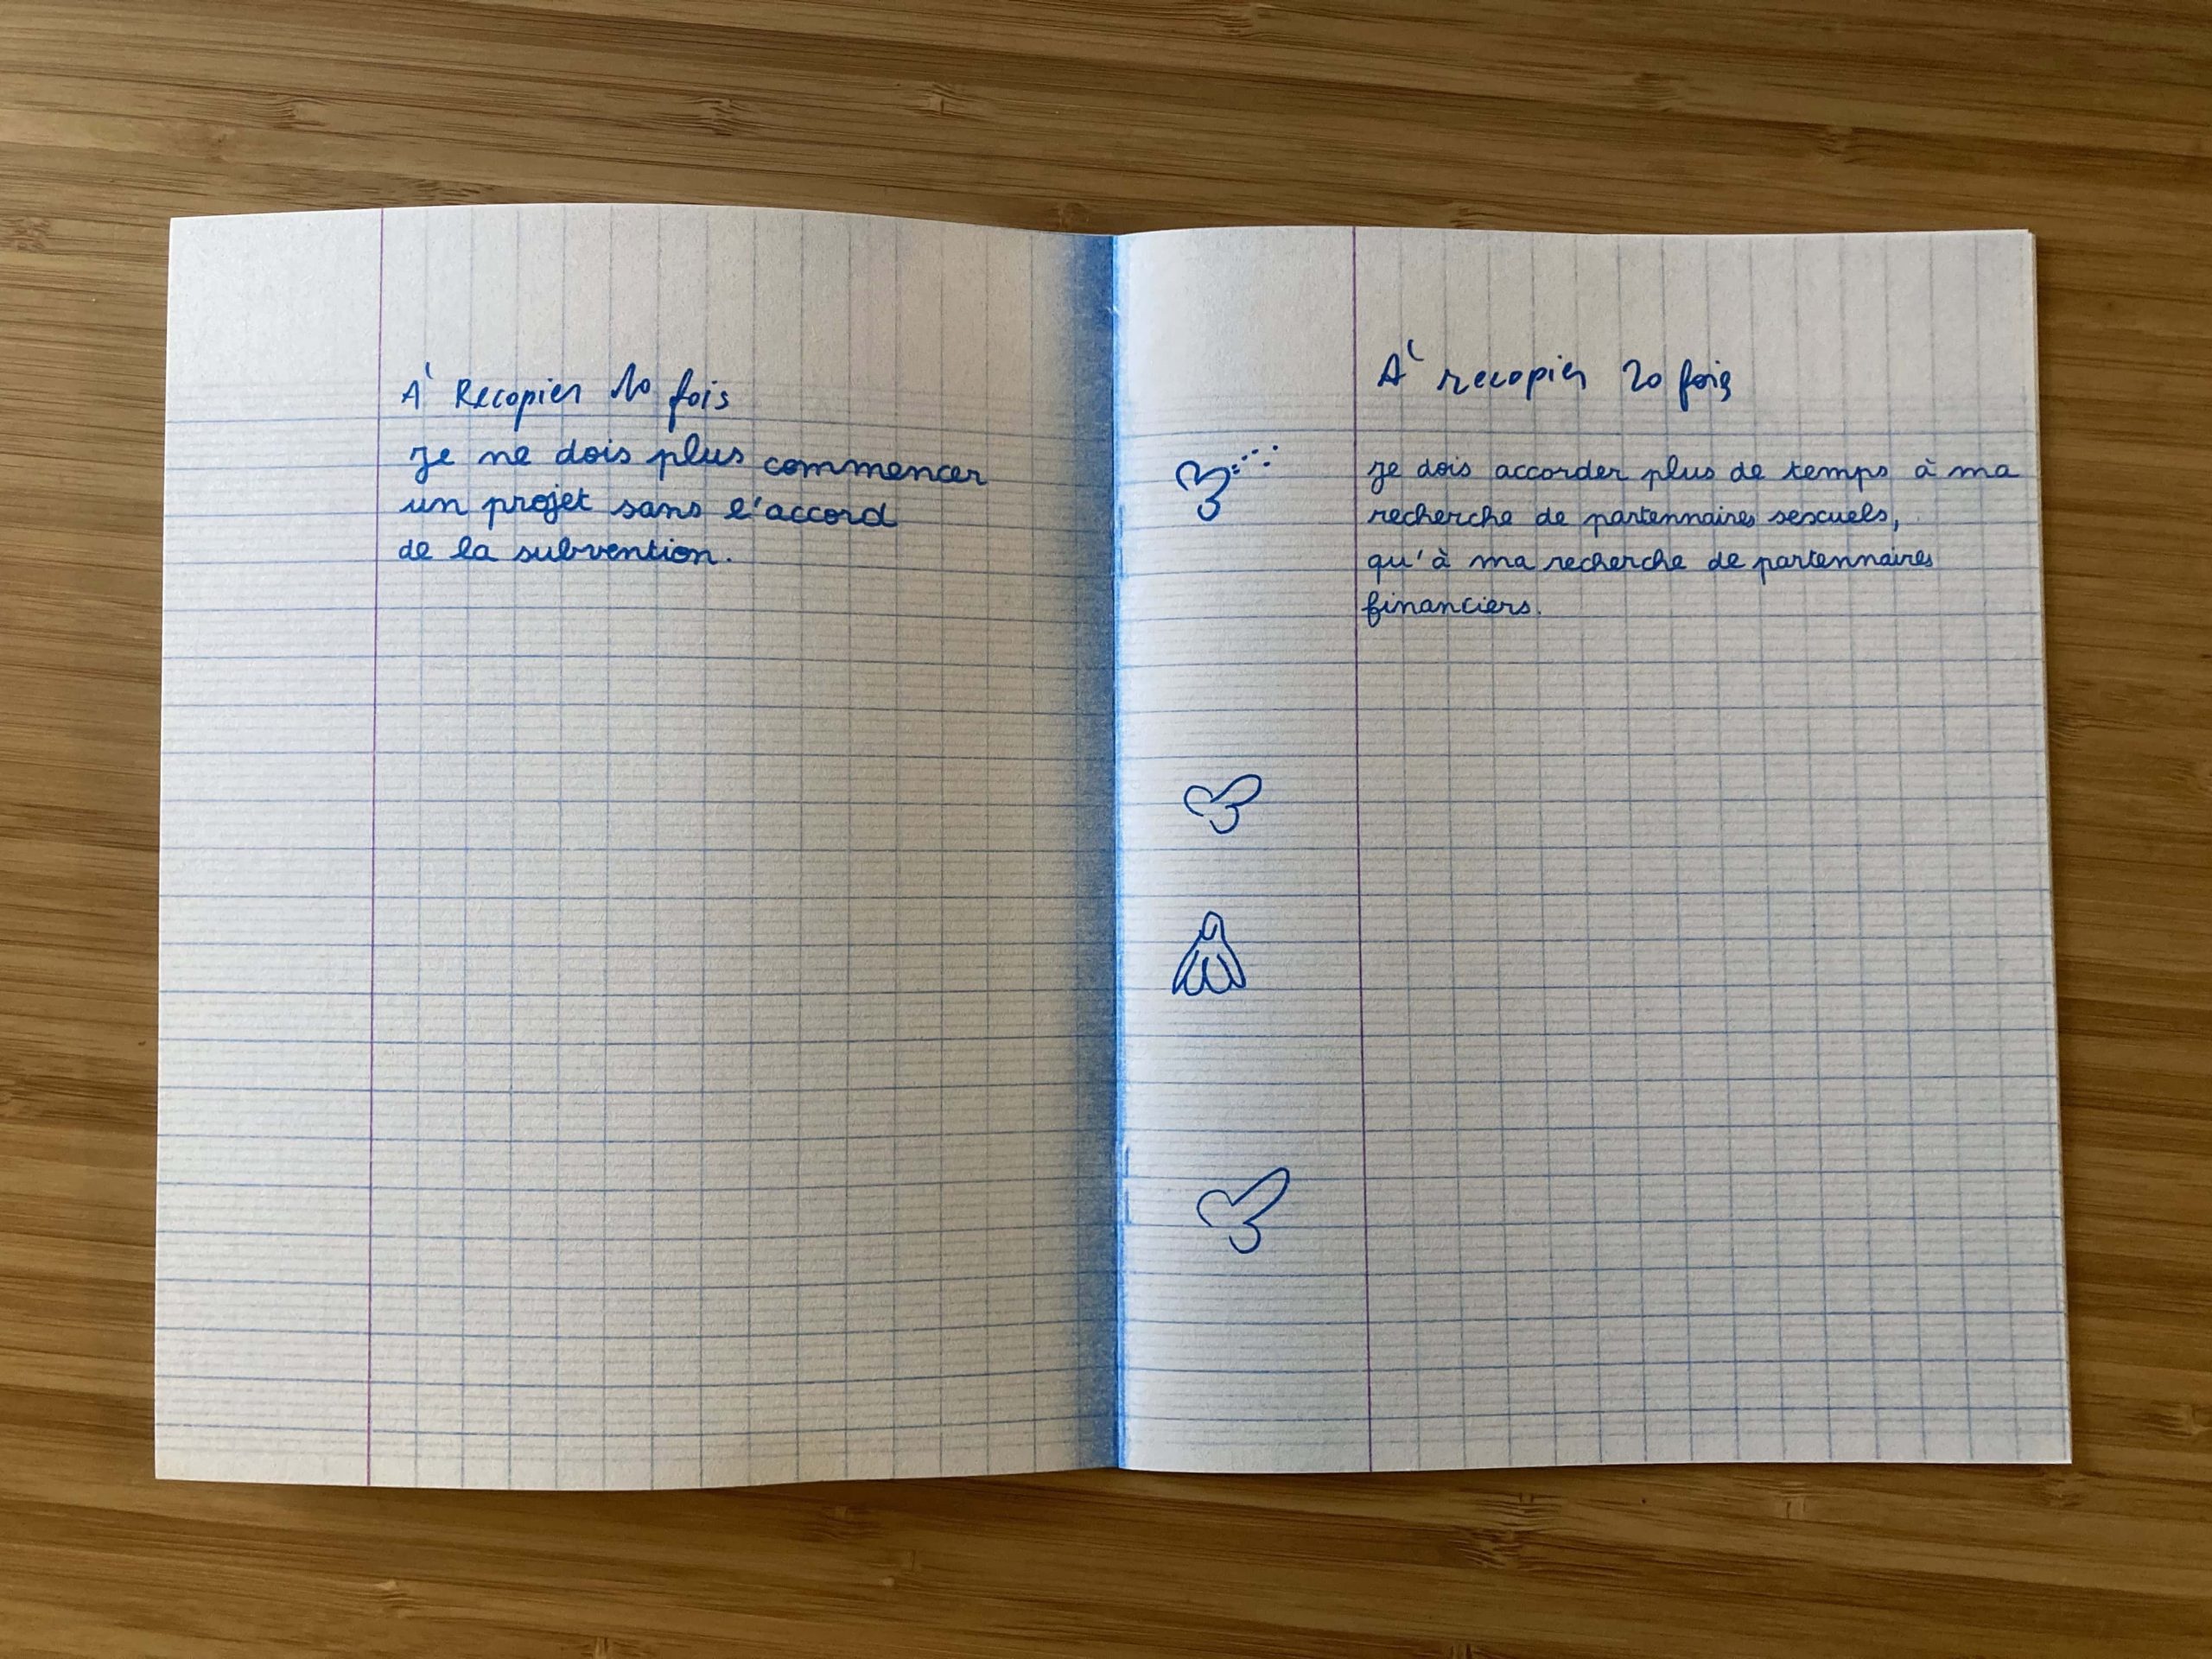 A' Recopier 10 fois
Je ne dois plus commencer
un projet sans l'accord
de la subvention.
A' recopier 20 fois
Je dois accorder plus de temps à ma
recherche de partennaires sexuels,
qu'à ma recherche de partennaires
financiers.